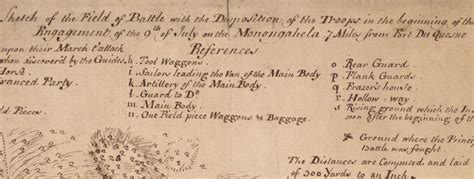 Sketch of the Field of Battle with the Disposition of the Troops in the beginning of the
Engagement of the 9th of July on the Monongahela 7 Miles from Fort Du Quesne
References
upon their March & attack
when discover'd by the Guides
Horse
Advanced Party
Field Pieces
h. Tool Waggons.
i. Sailors leading the Van of the Main Body
k. Artillery of the Main Body
l. Guard to Do
m. Main Body
n. One Field piece Waggons & Baggage.
o Rear Guard
p Flank Guards
q Frazer's house
r. Hollow way.
s. Rising ground which the
after the beginning of
Ground where the
Battle was fought.
The Distances are Computed and laid
of 300 Yards to an Inch